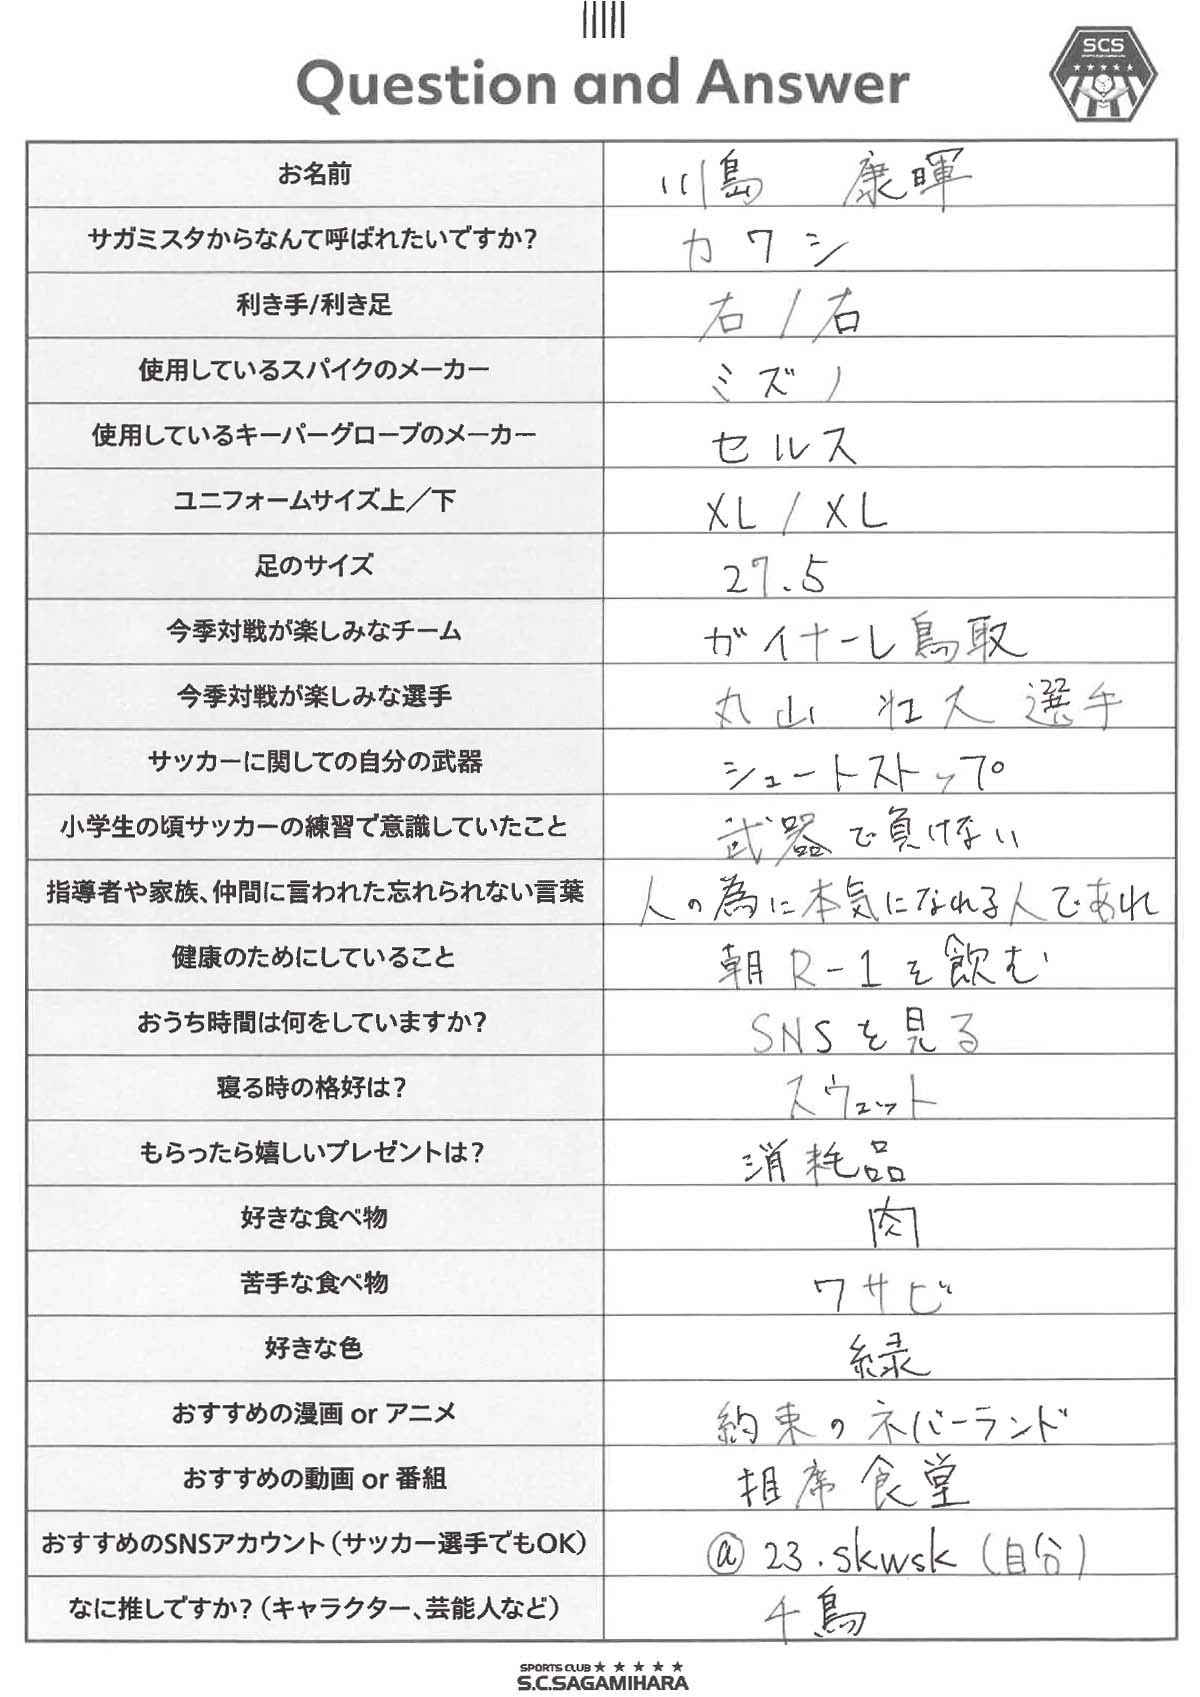 Question and Answer
SCS
お名前 川島 康暉
サガミスタからなんて呼ばれたいですか? カワシ
利き手/利き足 右/右
使用しているスパイクのメーカー ミズノ
使用しているキーパーグローブのメーカー セルス
ユニフォームサイズ上/下 XL/XL
足のサイズ 27.5
今季対戦が楽しみなチーム ガイナーレ鳥取
今季対戦が楽しみな選手 丸山 壮大 選手
サッカーに関しての自分の武器 シュートストップ
小学生の頃サッカーの練習で意識していたこと 武器で負けない
指導者や家族、仲間に言われた忘れられない言葉 人の為に本気になれる人であれ
健康のためにしていること 朝R-1を飲む
おうち時間は何をしていますか? SNSを見る
寝る時の格好は? スウェット
もらったら嬉しいプレゼントは? 消耗品
好きな食べ物 肉
苦手な食べ物 ワサビ
好きな色 緑
おすすめの漫画 or アニメ 約束のネバーランド
おすすめの動画 or 番組 相席食堂
おすすめのSNSアカウント(サッカー選手でもOK) @23.skwsk(自分)
なに推しですか?(キャラクター、芸能人など) 千鳥
SPORTS CLUB ★★★★★
S.C.SAGAMIHARA